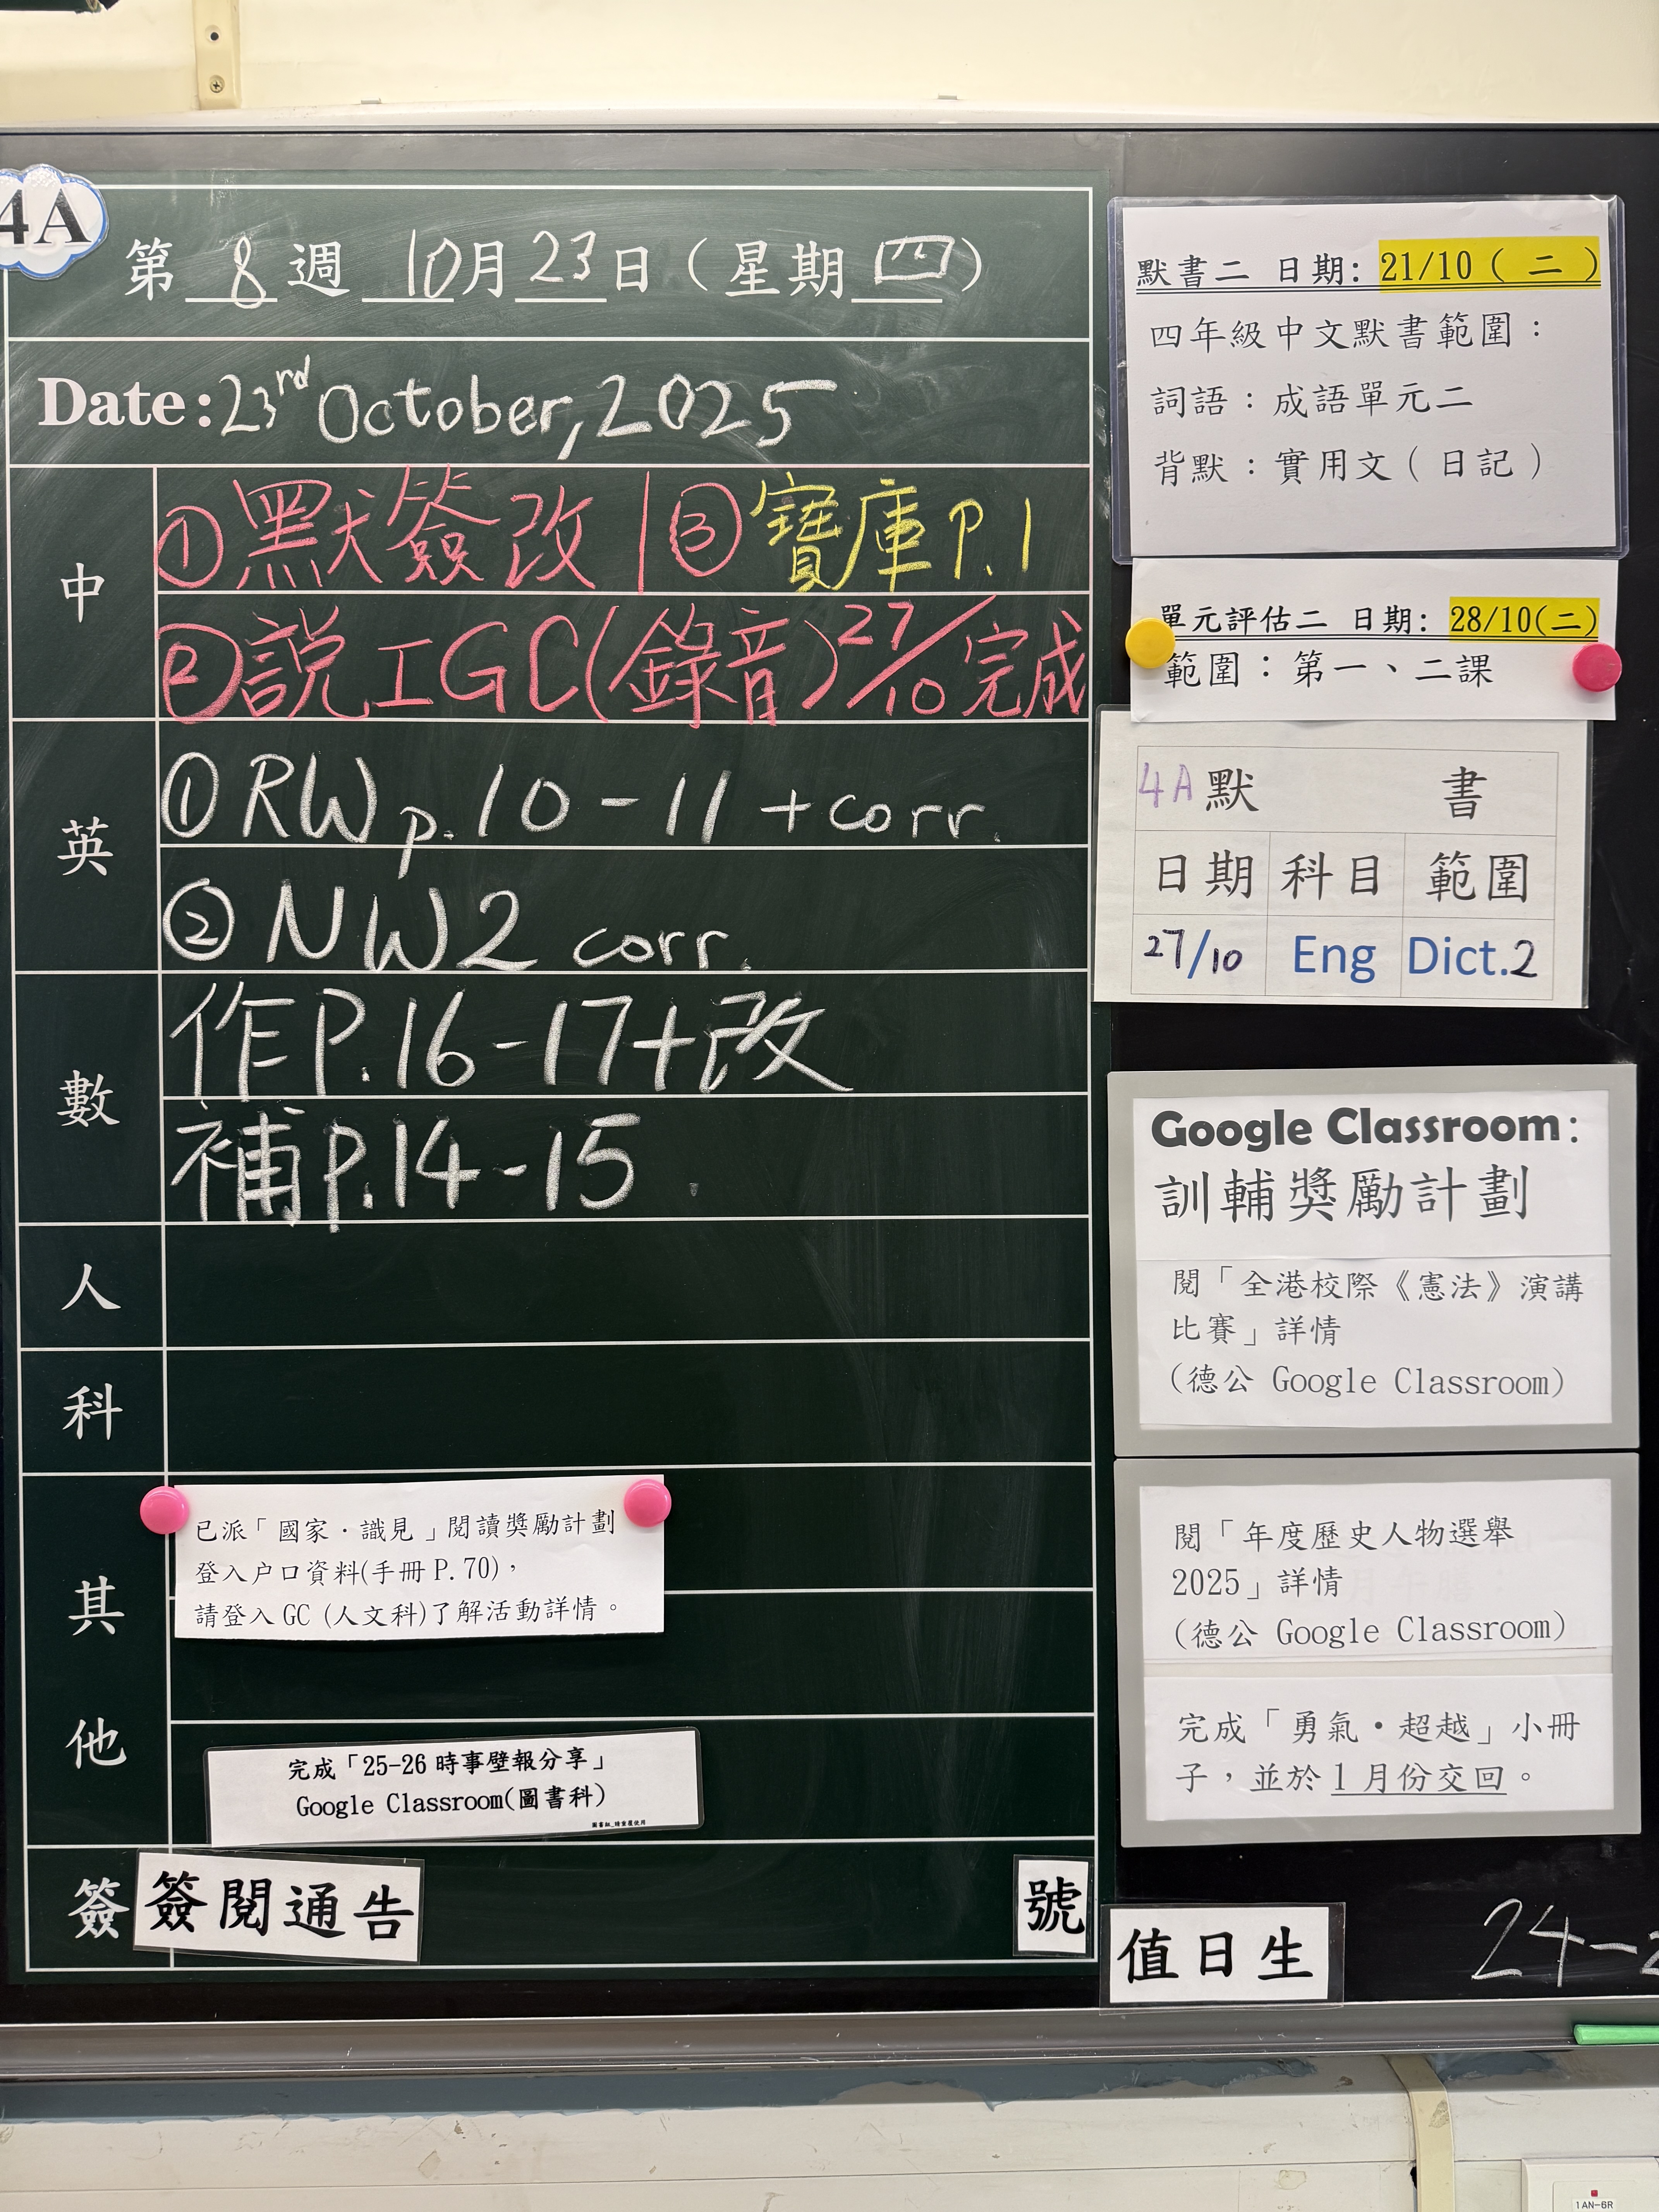 4A
第 8 週 10 月 23 日（星期 四）
Date: 23rd October, 2025
中
① 默簽改 | ③ 寶庫 P.1
② 説工GC(錄音) 27/10 完成
英
① RW p.10-11 + corr.
② NW2 corr.
數
作P.16-17+改
補P.14-15
人
科
其他
已派「國家·識見」閱讀獎勵計劃
登入户口資料(手冊 P.70)，
請登入 GC (人文科)了解活動詳情。
完成「25-26 時事壁報分享」
Google Classroom(圖書科)
簽 簽閱通告 號
默書二 日期: 21/10 ( 二 )
四年級中文默書範圍：
詞語：成語單元二
背默：實用文（日記）
單元評估二 日期: 28/10(二)
範圍：第一、二課
4A 默 書
日期 科目 範圍
27/10 Eng Dict.2
Google Classroom:
訓輔獎勵計劃
閱「全港校際《憲法》演講
比賽」詳情
(德公 Google Classroom)
閱「年度歷史人物選舉
2025」詳情
(德公 Google Classroom)
完成「勇氣·超越」小冊
子，並於 1 月份交回。
值日生 24-
1AN-6R